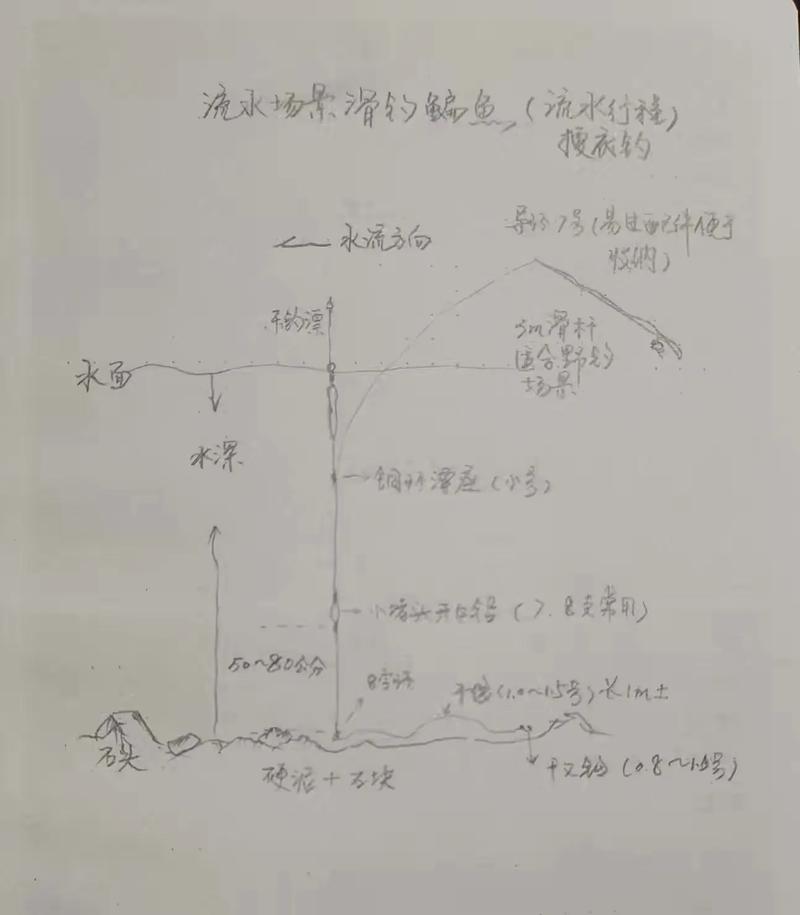 流水场景滑钓鳊鱼,(流水行程)
搜底钓
导环7号(易过配件便于
收纳)
← 水流方向
平钓漂
5m滑杆
适合野钓
场景
水面
水深
铜环漂座(小号)
开口铅(7.8支常用)
50~80公分
8字环
子线(1.0~1.5号)长1m±
石头
硬泥+石块
(0.8~1.5号)